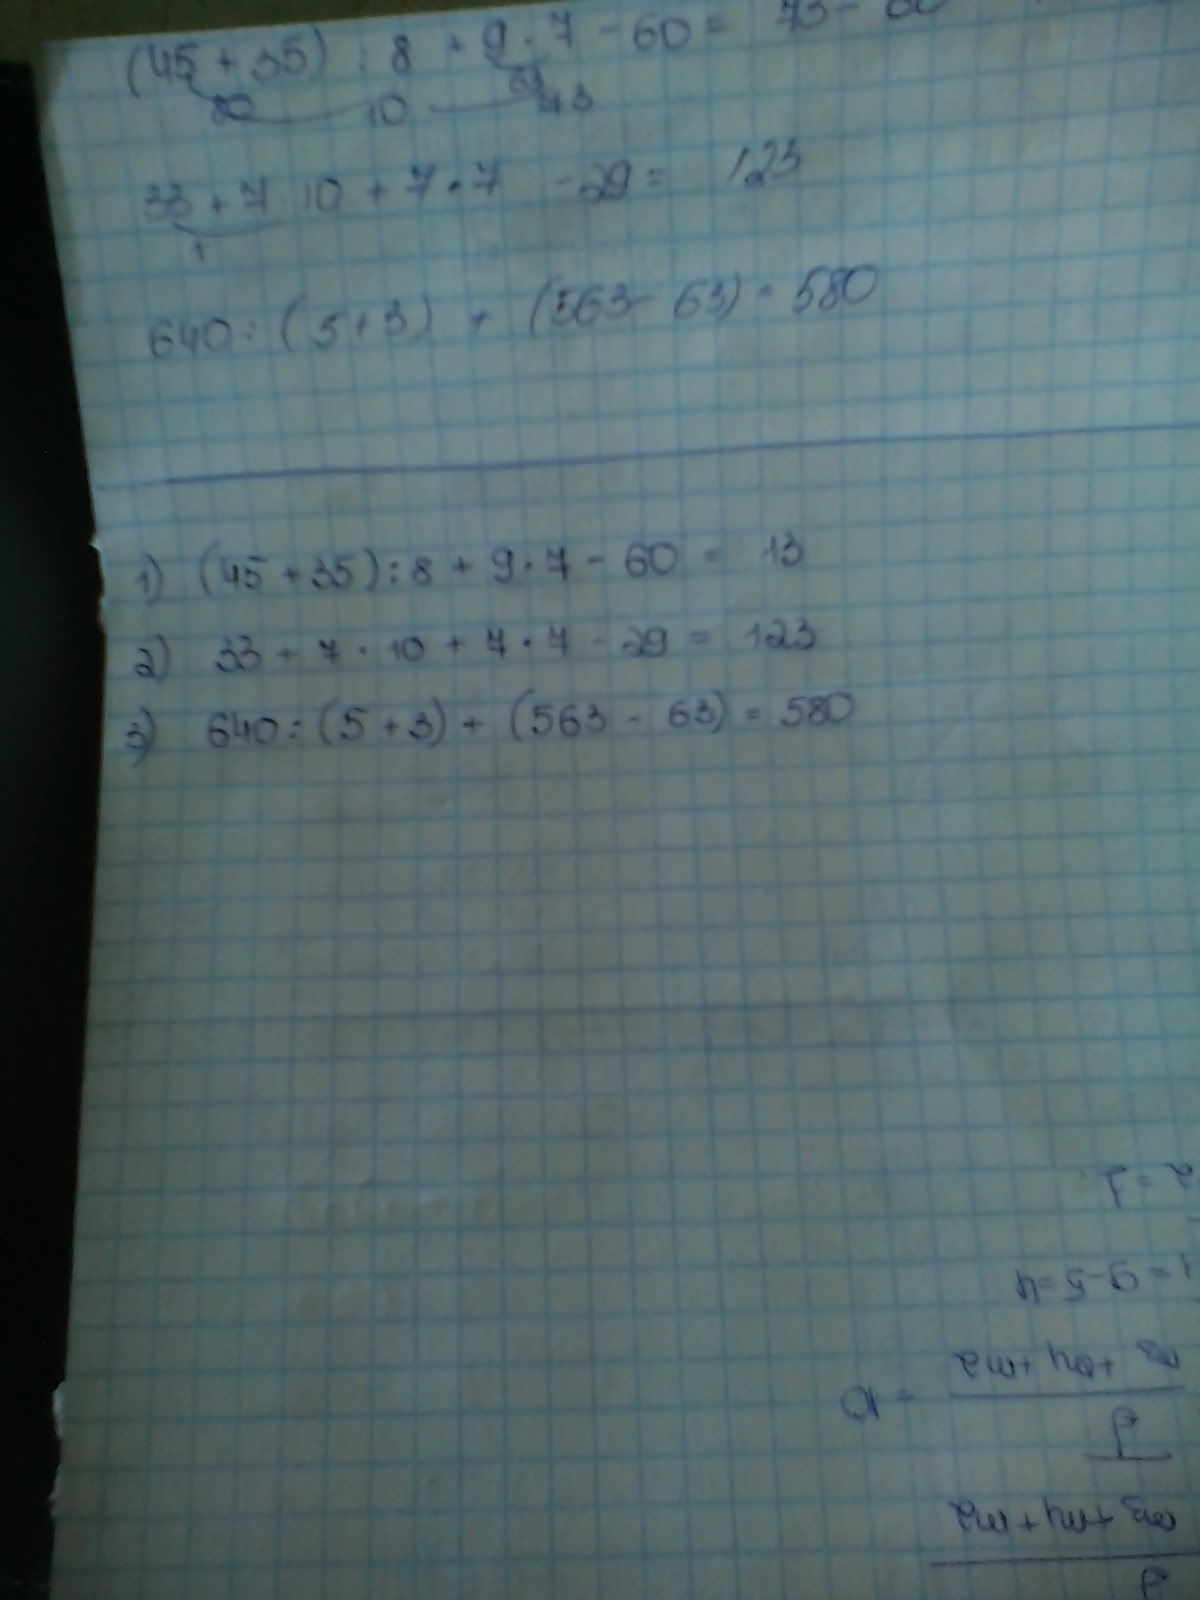 (45 + 35) : 8 + 9 · 7 - 60 = 73 - 60
63
80 10 43
33 + 7 10 + 7 · 7 - 29 = 123
1
640 : (5 + 3) + (563 - 63) = 580
1) (45 + 35) : 8 + 9 · 7 - 60 = 13
2) 33 + 7 · 10 + 7 · 7 - 29 = 123
3) 640 : (5 + 3) + (563 - 63) = 580
1 = 9 - 5 = 4
m3 + m4 + m2